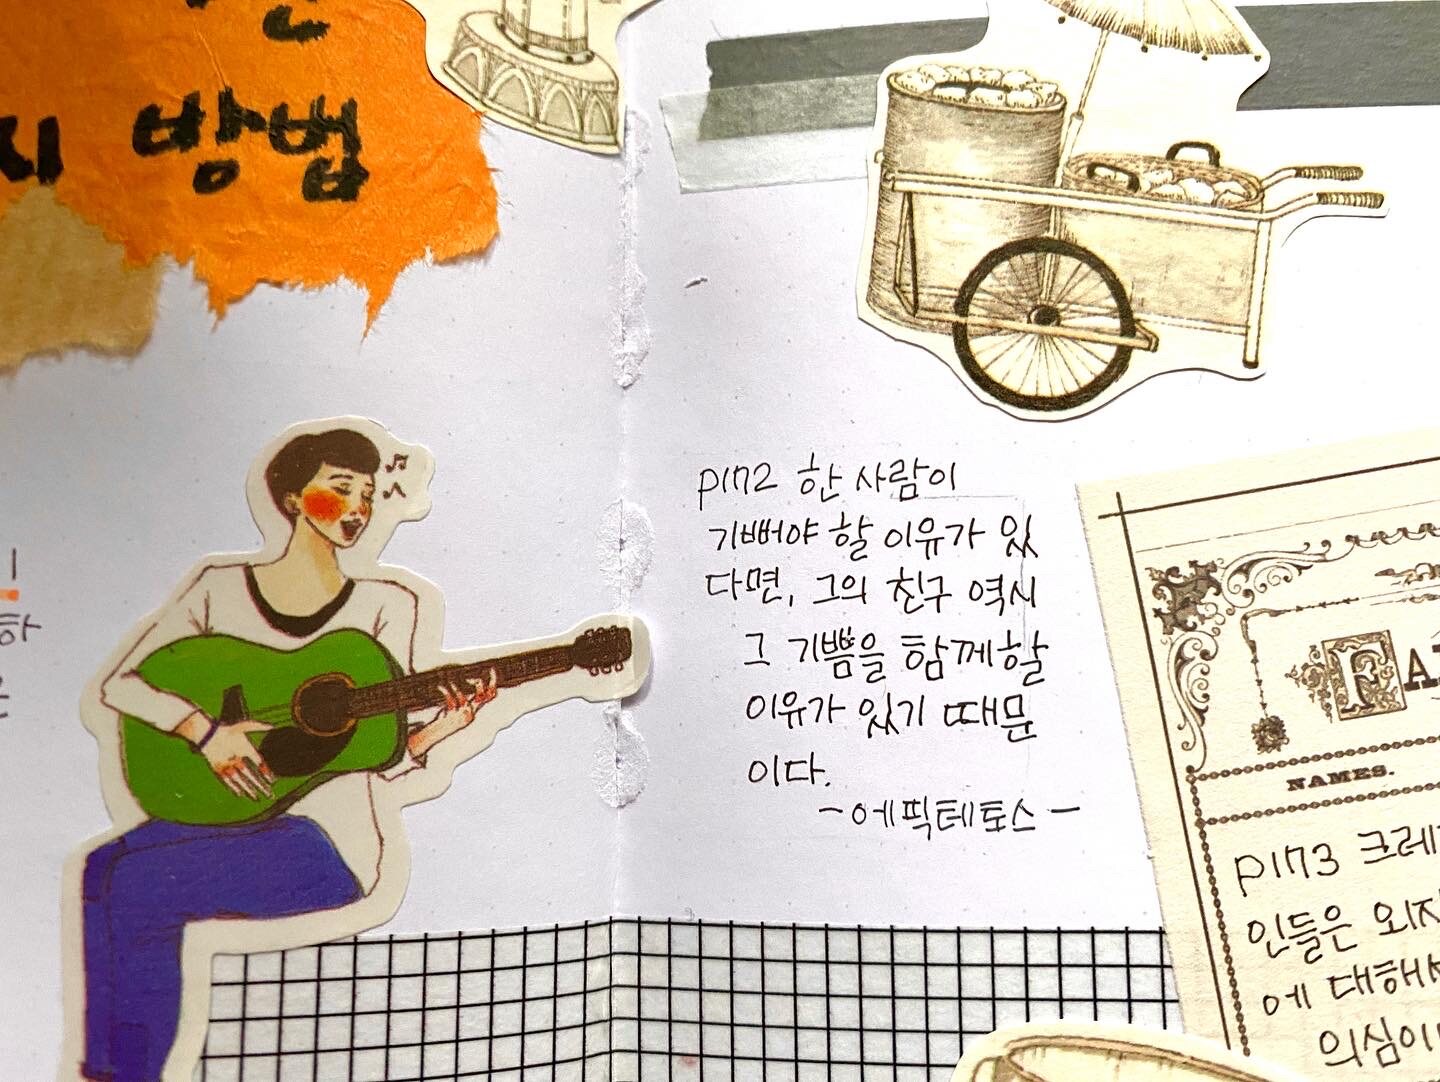 방법
하
p172 한 사람이
기뻐야 할 이유가 있
다면, 그의 친구 역시
그 기쁨을 함께할
이유가 있기 때문
이다.
-에픽테토스-
NAMES.
p173 크레
인들은 외지
에 대해서
의심이